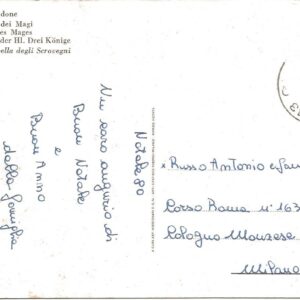 done
dei Magi
es Mages
der Hl. Drei Könige
ella degli Scrovegni
Natale 80
Un caro augurio di
Buon Natale
e
Buon Anno
dalla famiglia
Russo Antonio e fam
Corso Roma n° 163
Cologno Monzese
Milano